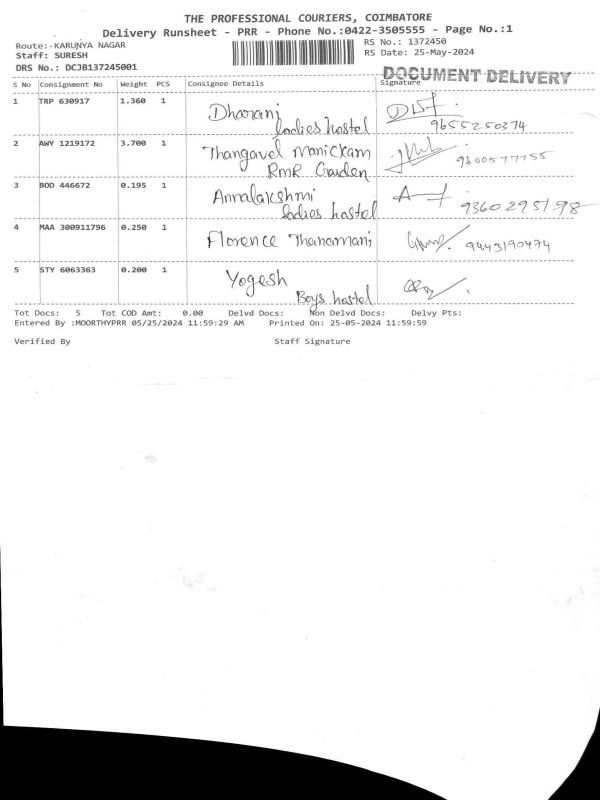 THE PROFESSIONAL COURIERS, COIMBATORE
Delivery Runsheet - PRR - Phone No.:0422-3505555 - Page No.:1
Route:-KARUNYA NAGAR
RS No.: 1372450
Staff: SURESH
RS Date: 25-May-2024
DRS No.: DCJB137245001
DOCUMENT DELIVERY
S No Consignment No Weight PCS Consignee Details Signature
1 TRP 630917 1.360 1 Dharani
ladies hostel 9655250374
2 AWY 1219172 3.700 1 Thangavel Manickam 9600577755
RMR Garden
3 BOD 446672 0.195 1 Annalakshmi
ladies hostel 9360295198
4 MAA 300911796 0.250 1 Florence Thanamani 9443190474
5 STY 6063363 0.200 1 Yogesh
Boys hostel
Tot Docs: 5 Tot COD Amt: 0.00 Delvd Docs: Non Delvd Docs: Delvy Pts:
Entered By :MOORTHYPRR 05/25/2024 11:59:29 AM Printed On: 25-05-2024 11:59:59
Verified By Staff Signature